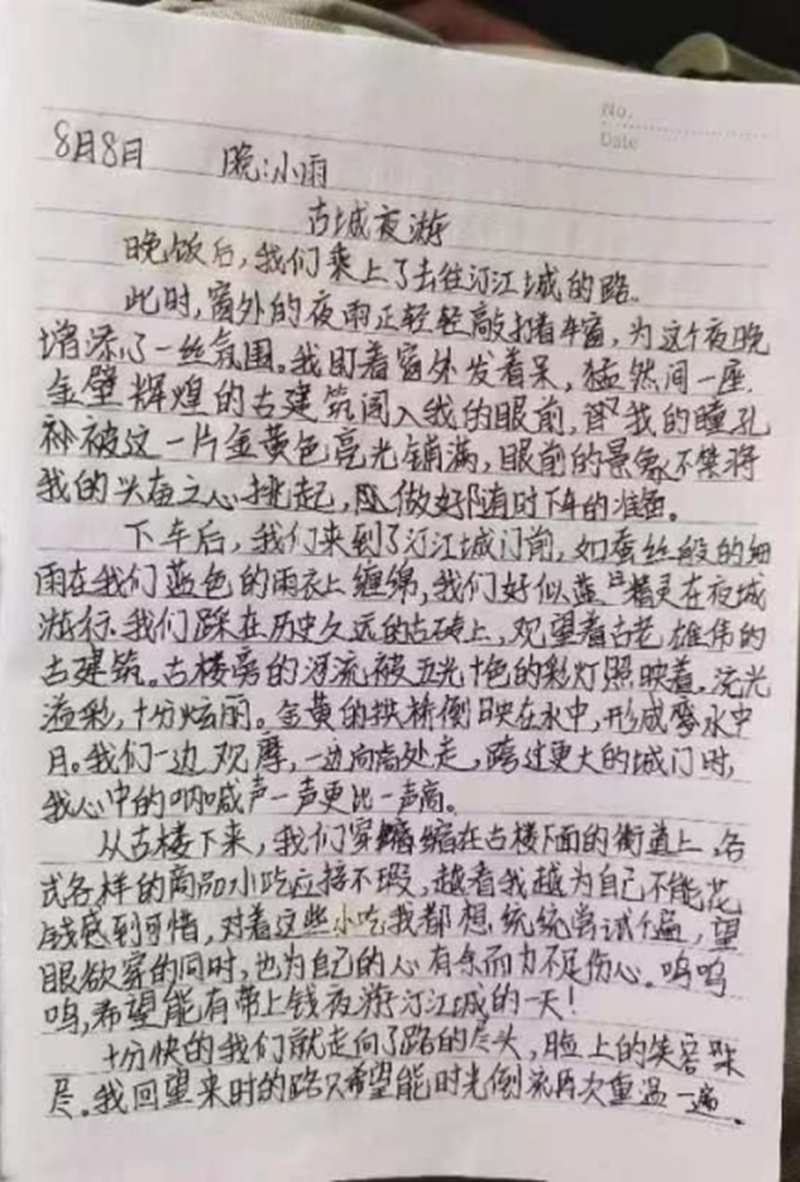 No.
Date
8月8日 晚:小雨
古城夜游
晚饭后,我们乘上了去往汀江城的路.
此时,窗外的夜雨正轻轻敲打着车窗,为这个夜晚
增添了一丝氛围。我盯着窗外发着呆,猛然间一座
金壁辉煌的古建筑闯入我的眼前,我的瞳孔
被这一片金黄色亮光铺满,眼前的景象不禁将
我的兴奋之心挑起,做好随时下车的准备。
下车后,我们来到了汀江城门前,如蚕丝般的细
雨在我们蓝色的雨衣上缠绵,我们好似蓝色精灵在夜城
游行.我们踩在历史久远的古砖上,观望着古老雄伟的
古建筑。古楼旁的河流被五光十色的彩灯照映着,流光
溢彩,十分炫丽。金黄的拱桥倒映在水中,形成水中
月。我们一边观摩,一边向高处走,跨过更大的城门时,
我心中的呐喊声一声更比一声高。
从古楼下来,我们穿缩在古楼下面的街道上,各
式各样的商品小吃应接不瑕,越看我越为自己不能花
钱感到可惜,对着这些小吃我都想统统尝试个遍,望
眼欲穿的同时,也为自己的心有余而力不足伤心。呜呜
呜,希望能有带上钱夜游汀江城的一天!
十分快的我们就走向了路的尽头,脸上的笑容
尽。我回望来时的路只希望能时光倒流再次重温一遍.